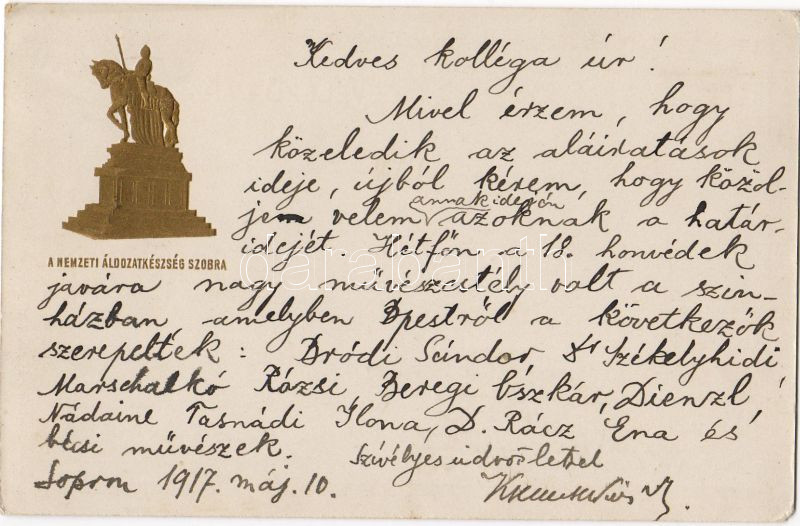 Kedves kolléga úr!
Mivel érzem, hogy
közeledik az aláiratások
ideje, újból kérem, hogy közöl-
jem velem annakidején azoknak a határ-
idejét. Hétfőn a 18. honvédek
A NEMZETI ÁLDOZATKÉSZSÉG SZOBRA
javára nagy művészestély volt a szin-
házban amelyben Bpestről a következők
szerepeltek: Bródi Sándor, Dr Székelyhidi
Marschalkó Rózsi, Beregi Oszkár, Dienzl,
Nádainé Tasnádi Ilona, D. Rácz Ena és
bécsi művészek.
Szívélyes üdvözlettel
Sopron 1917. máj. 10.
darabanth